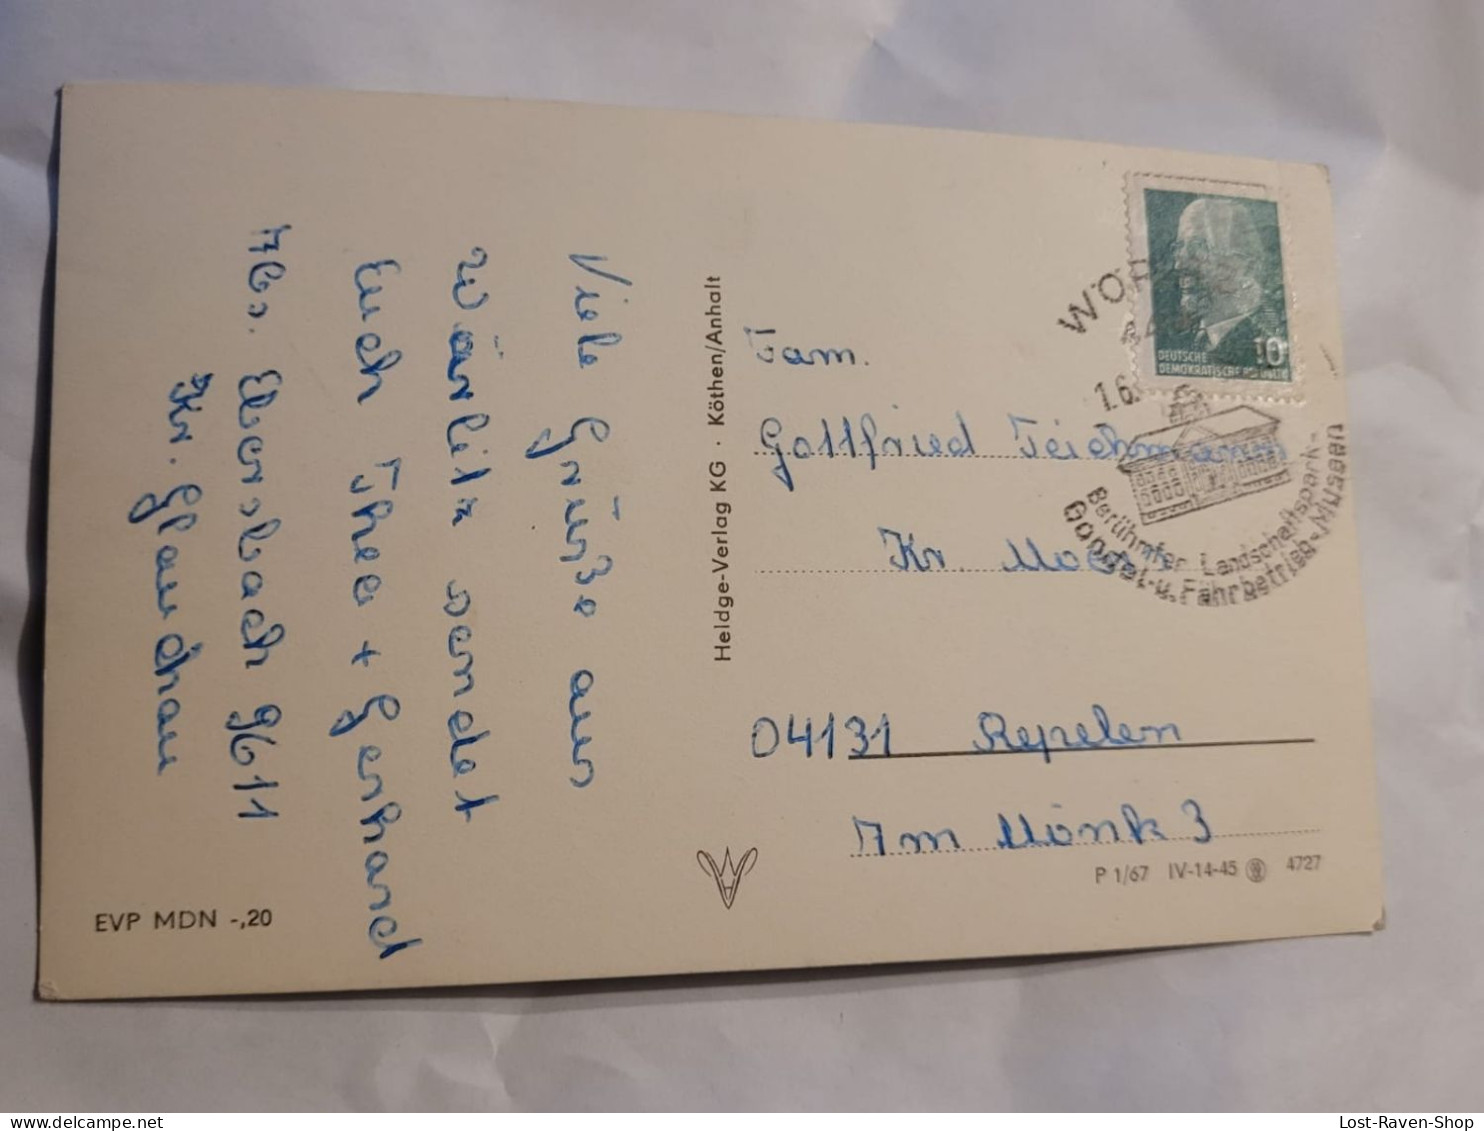 Viele Grüße aus
Wörlitz sendet
Euch Theo + Gerhard
Abs. Ebersbach 9611
Kr. Glauchau
EVP MDN -,20
Heldge-Verlag KG · Köthen/Anhalt
DEUTSCHE
DEMOKRATISCHE REPUBLIK
10
Berühmter Landschaftspark-
Gondel-u. Fährbetrieb-Museen
Fam.
Gottfried Teichmann
Kr Moers
04131 Repelen
Am Mönk 3
P 1/67 IV-14-45 4727
Lost-Raven-Shop